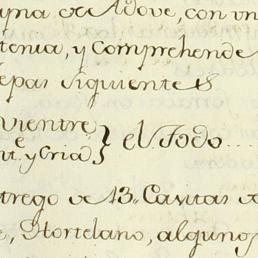 una de Adove, con un
tenia, y Comprehende
epas Siguientes
Vientre
nt.e y Cria } el Todo....
trego de 13.. Cavitas de
e, Hortelano, alguno